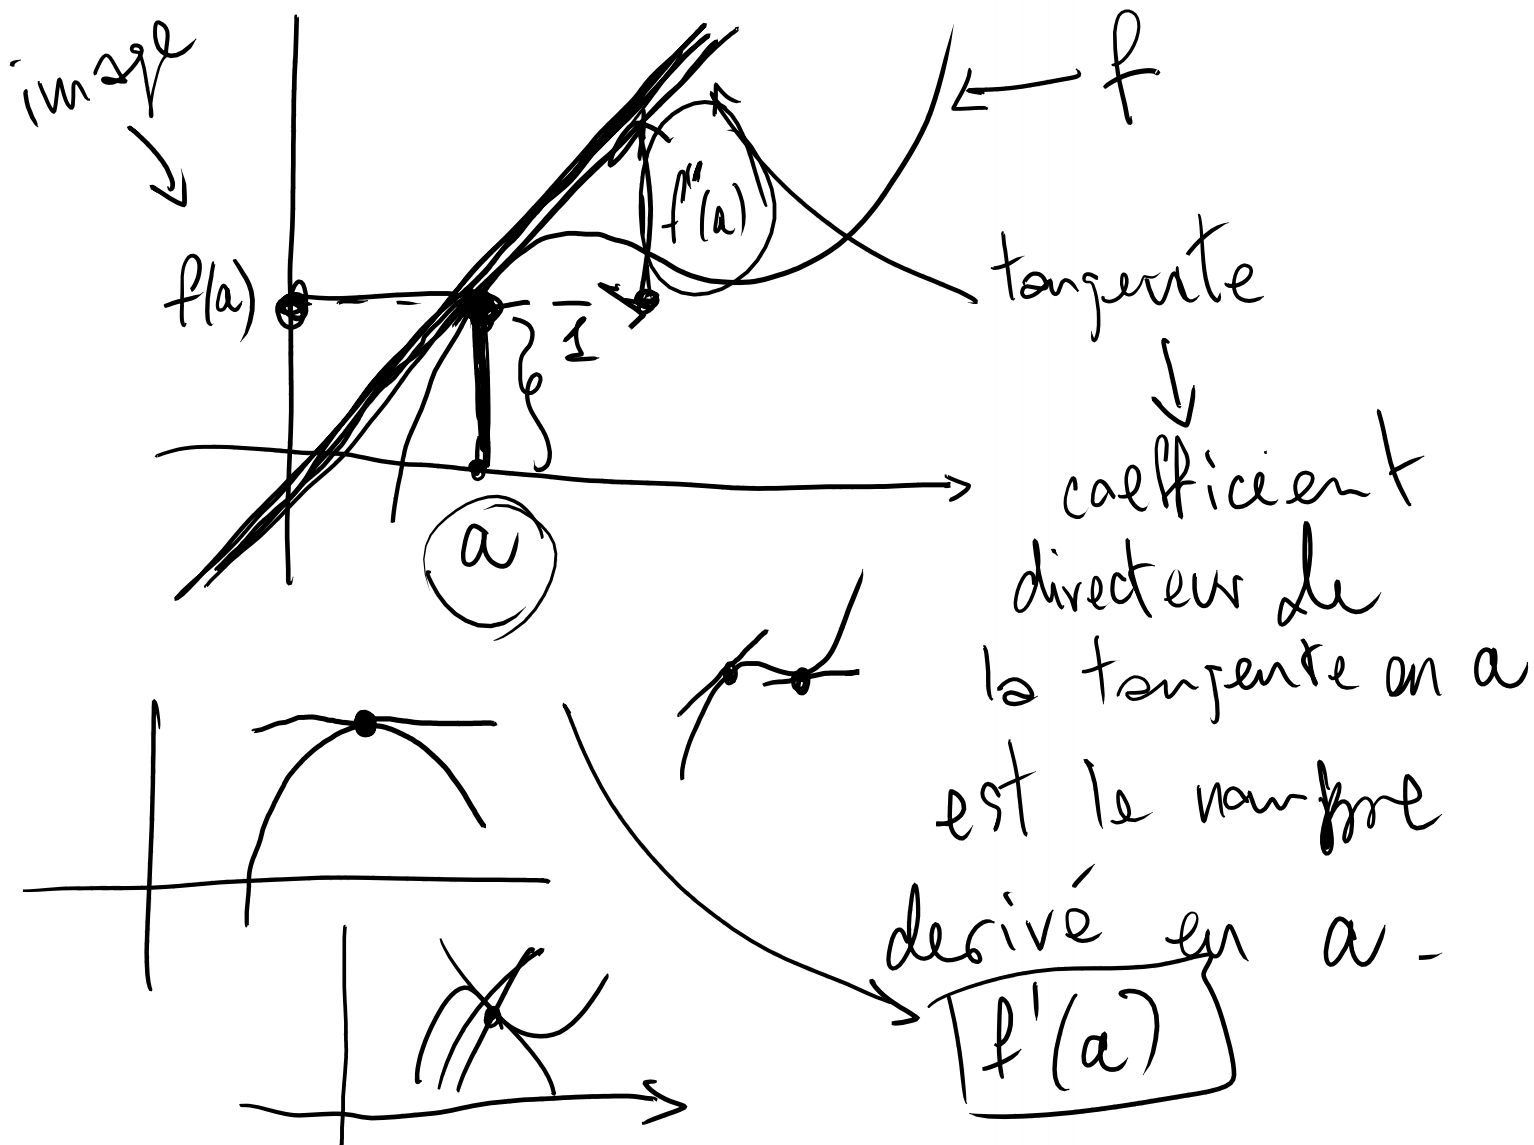 image
f
f(a)
f'(a)
1
tangente
a
coefficient
directeur de
la tangente en a
est le nombre
derivé en a.
f'(a)